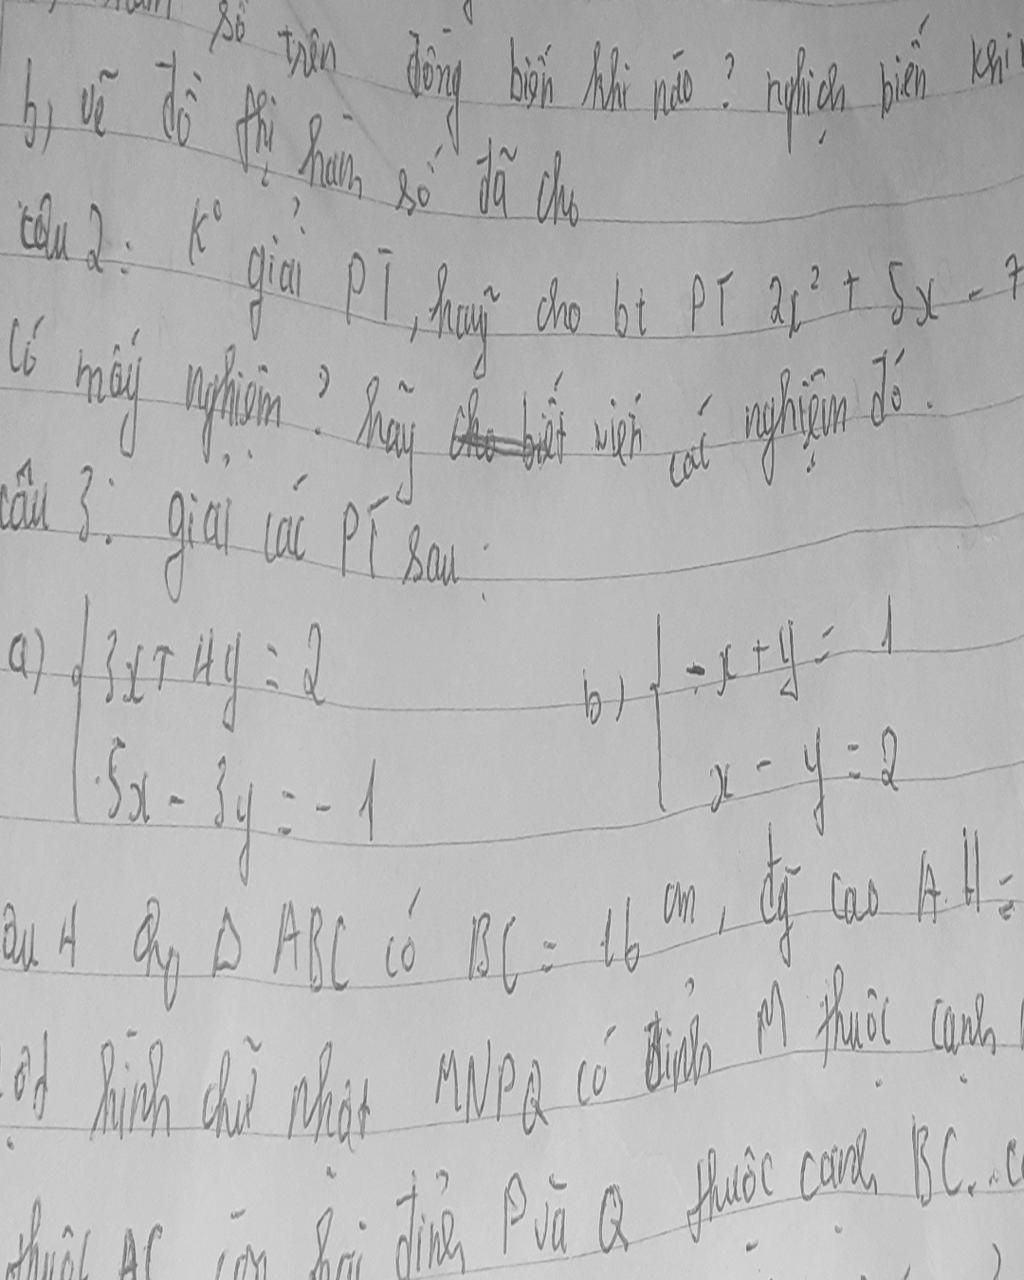 số trên đồng biến khi nào? nghịch biến khi
b, vẽ đồ thị hàm số đã cho
câu 2: K° giải PT, hãy cho bt PT 2x² + 5x - 7
Có mấy nghiệm? hãy viết các nghiệm đó.
câu 3: giải các PT sau:
a) { 3x + 4y = 2 b) { -x + y = 1
5x - 3y = -1 x - y = 2
âu 4 Cho Δ ABC có BC = 16 cm, đg cao AH =
hình chữ nhật MNPQ có đỉnh M thuộc cạnh
thuộc AC còn hai đỉnh P và Q thuộc cạnh BC.